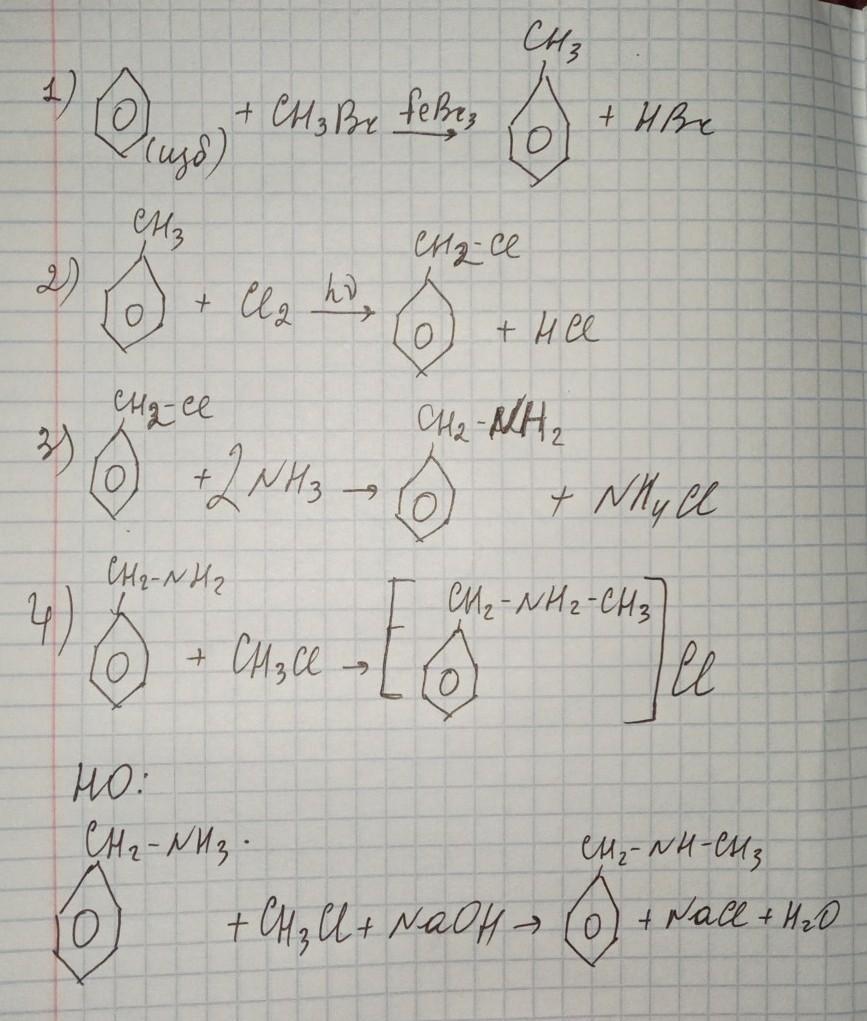 1) (изб) + CH₃Br FeBr₃ → CH₃ + HBr
2) CH₃ + Cl₂ hν → CH₂-Cl + HCl
3) CH₂-Cl + 2NH₃ → CH₂-NH₂ + NH₄Cl
4) CH₂-NH₂ + CH₃Cl → [CH₂-NH₂-CH₃]Cl
НО:
CH₂-NH₃· + CH₃Cl + NaOH → CH₂-NH-CH₃ + NaCl + H₂O